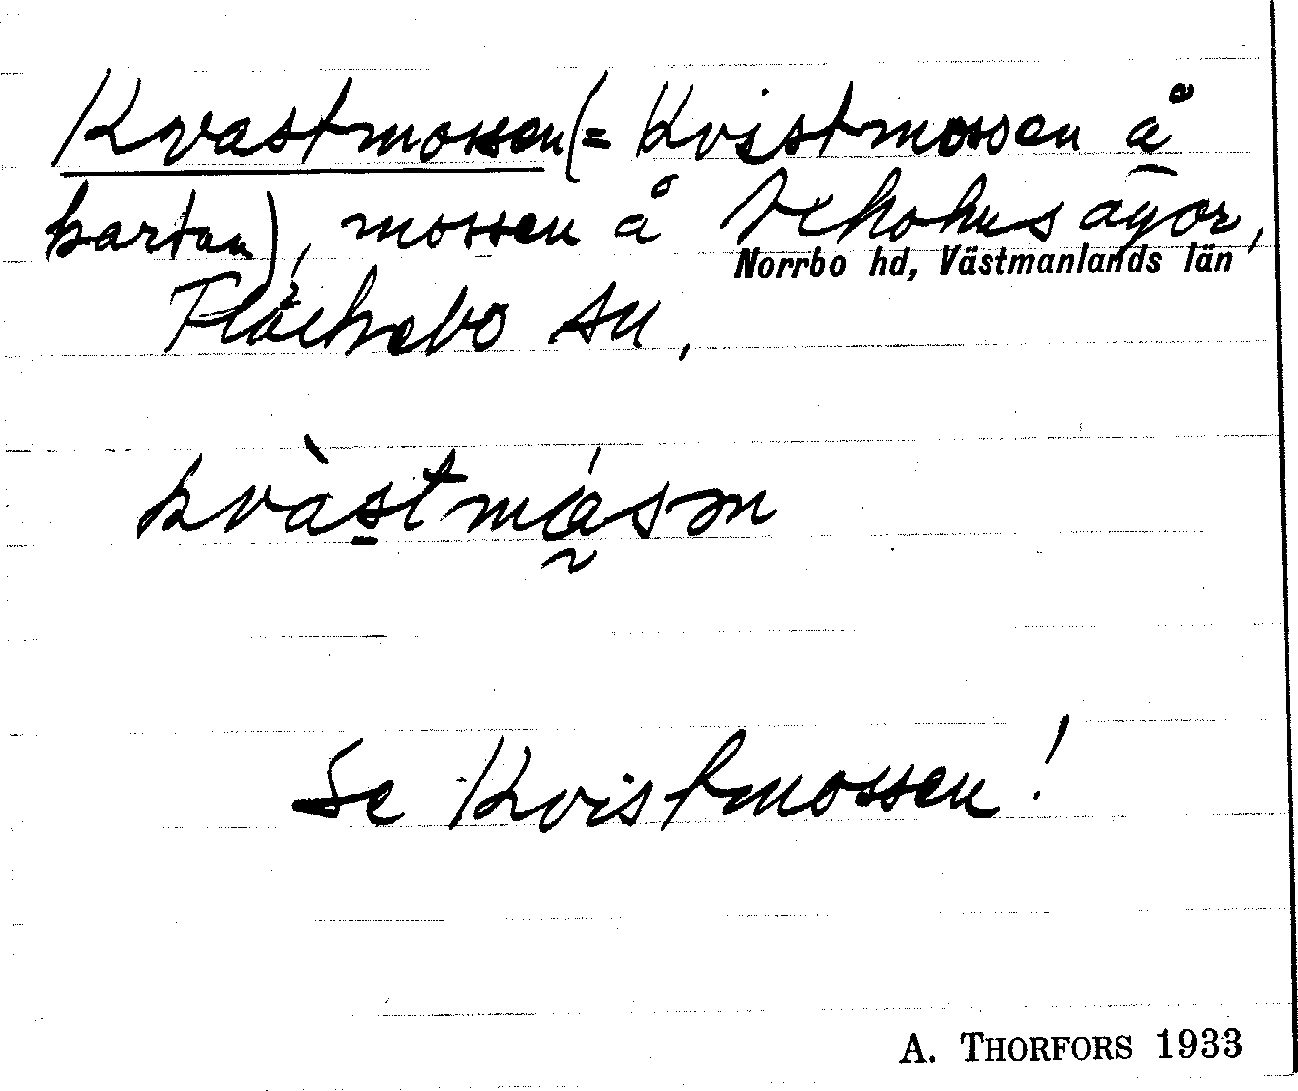 Kvastmossen (= Kvistmossen å
kartan), mossen å Vckohus ägor,
Norrbo hd, Västmanlands län
Fläckebo sn,
kvàstmåsən
Se Kvistmossen!
A. THORFORS 1933